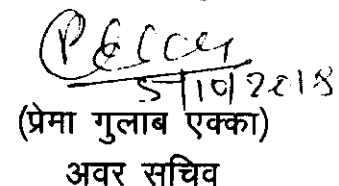 5/10/2018
(प्रेमा गुलाब एक्का)
अवर सचिव